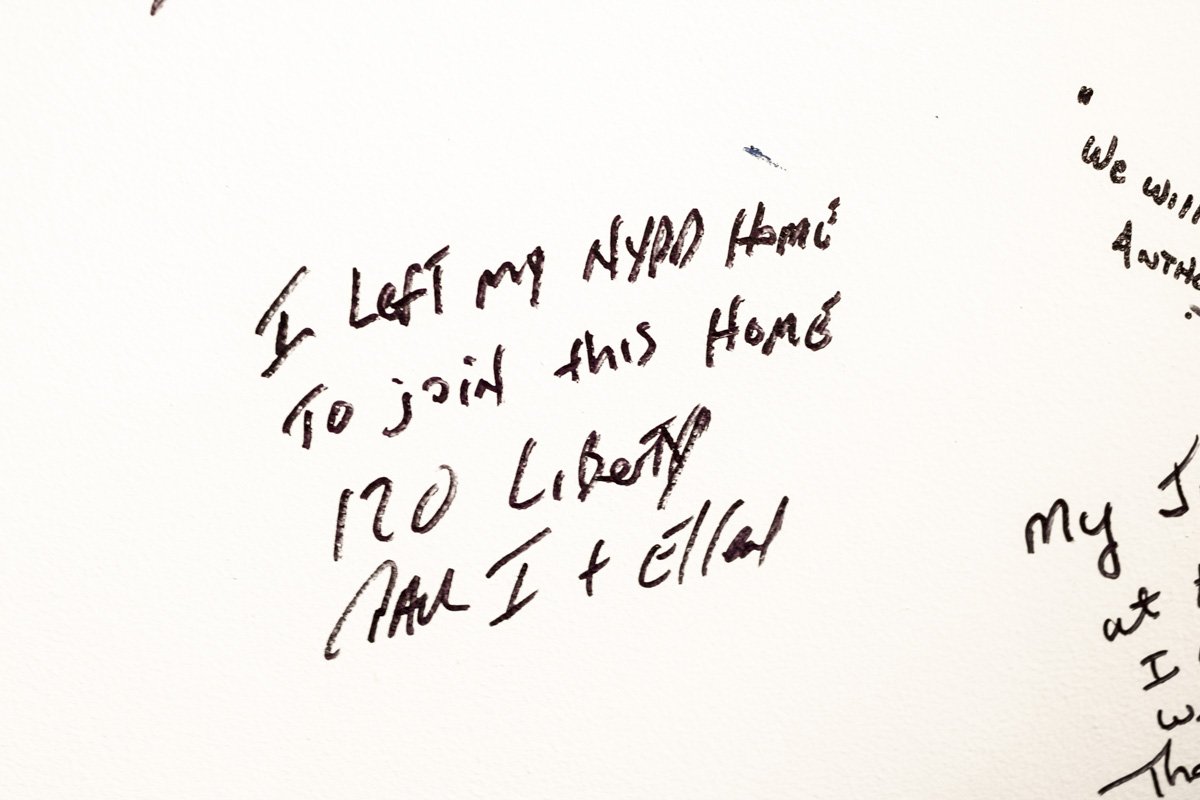 I Left my NYPD Home
To join this Home
120 Liberty
Paul I + Ellen
"
We will
Antho
My
at
I